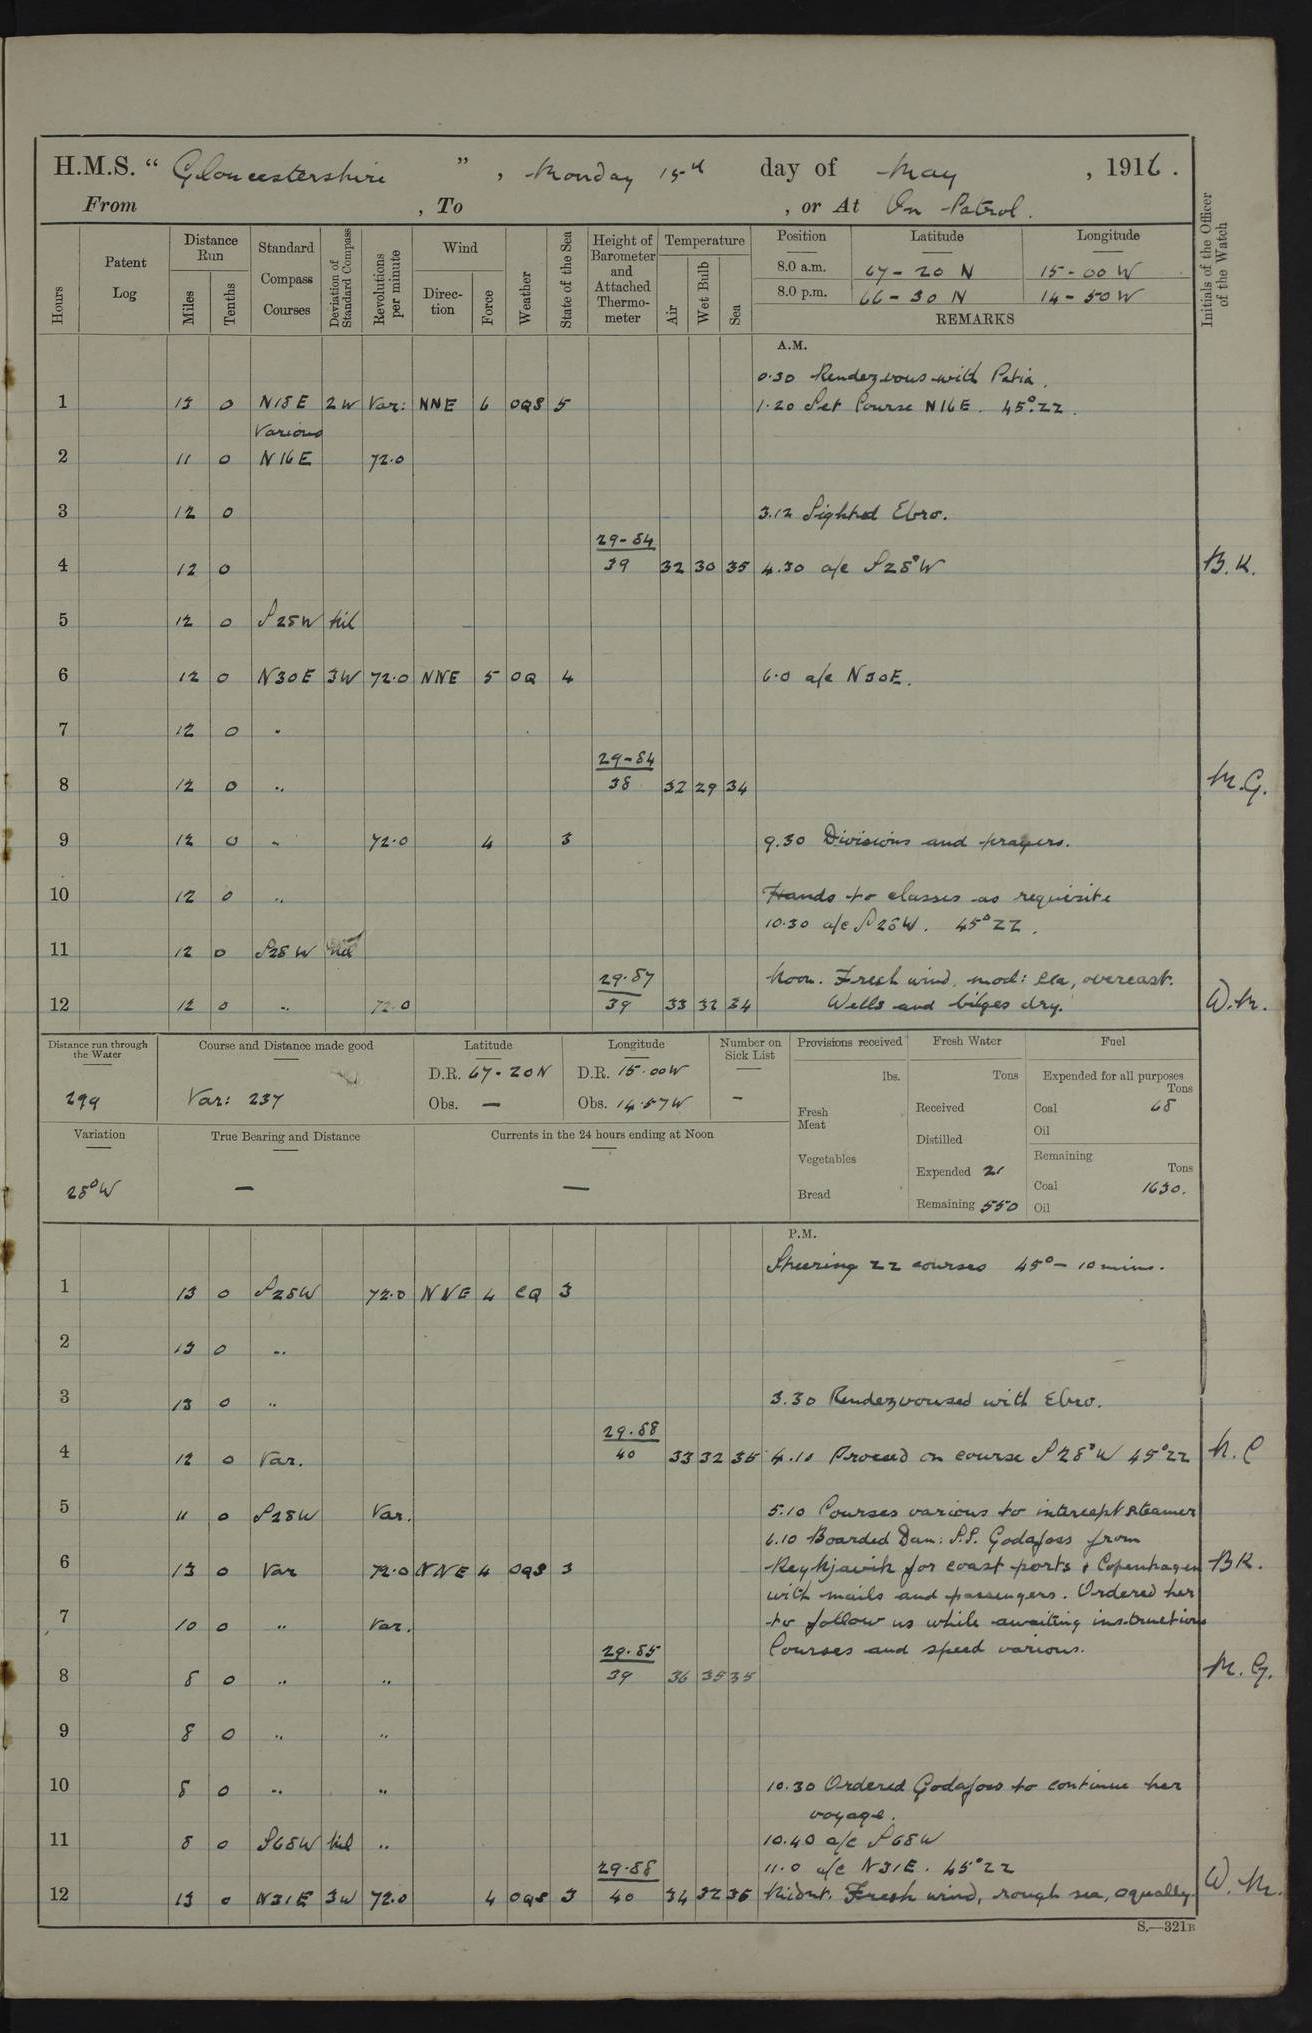 H.M.S. “ Gloucestershire ” , Monday 15th day of May , 1916 .
From , To , or At On Patrol.
Hours
Patent Log
Distance Run
Miles
Tenths
Standard Compass Courses
Deviation of Standard Compass
Revolutions per minute
Wind
Direction
Force
Weather
State of the Sea
Height of Barometer and Attached Thermometer
Temperature
Air
Wet Bulb
Sea
Position Latitude Longitude
8.0 a.m. 67-20 N 15-00 W
8.0 p.m. 66-30 N 14-50 W
REMARKS
Initials of the Officer of the Watch
A.M.
0.30 Rendezvous with Patia.
1 13 0 N18E 2W Var: NNE 6 OQS 5 1.20 Set Course N16E. 45° ZZ.
Various
2 11 0 N16E 72.0
3 12 0 3.12 Sighted Ebro.
29-84
4 12 0 39 32 30 35 4.30 a/c S28°W B.K.
5 12 0 S28W Nil
6 12 0 N30E 3W 72.0 NNE 5 OQ 4 6.0 a/c N30E.
7 12 0 "
29-84
8 12 0 " 38 32 29 34 M.G.
9 12 0 " 72.0 4 3 9.30 Divisions and prayers.
10 12 0 " Hands to classes as requisite
10.30 a/c S28W. 45° ZZ.
11 12 0 S28W Nil
29.87 Noon. Fresh wind, mod: sea, overcast.
12 12 0 " 72.0 39 33 32 34 Wells and bilges dry. W.M.
Distance run through the Water
299
Course and Distance made good
Var: 237
Latitude
D.R. 67-20N
Obs. —
Longitude
D.R. 15.00W
Obs. 14.57W
Number on Sick List
-
Provisions received
lbs.
Fresh Meat
Vegetables
Bread
Fresh Water
Tons
Received
Distilled
Expended 21
Remaining 550
Fuel
Expended for all purposes
Tons
Coal 68
Oil
Remaining
Tons
Coal 1630.
Oil
Variation
28°W
True Bearing and Distance
—
Currents in the 24 hours ending at Noon
—
P.M.
Steering ZZ courses 45° - 10 mins.
1 13 0 S28W 72.0 NNE 4 CQ 3
2 13 0 "
3 13 0 " 3.30 Rendezvoused with Ebro.
29.88
4 12 0 Var. 40 33 32 35 4.10 Proceed on course S28°W 45° ZZ N.C
5 11 0 S28W Var. 5.10 Courses various to intercept steamer
6.10 Boarded Dan: S.S. Godafoss from
6 13 0 Var 72.0 NNE 4 OQS 3 Reykjavik for coast ports & Copenhagen BK.
with mails and passengers. Ordered her
7 10 0 " Var. to follow us while awaiting instructions
29.85 Courses and speed various.
8 8 0 " " 39 36 35 35 M.G.
9 8 0 " "
10 8 0 " " 10.30 Ordered Godafoss to continue her
voyage.
11 8 0 S68W Nil " 10.40 a/c S68W
29.88 11.0 a/c N31E. 45° ZZ
12 13 0 N31E 3W 72.0 4 OQS 3 40 34 32 36 Midnt. Fresh wind, rough sea, squally. W.M.
S.—321B